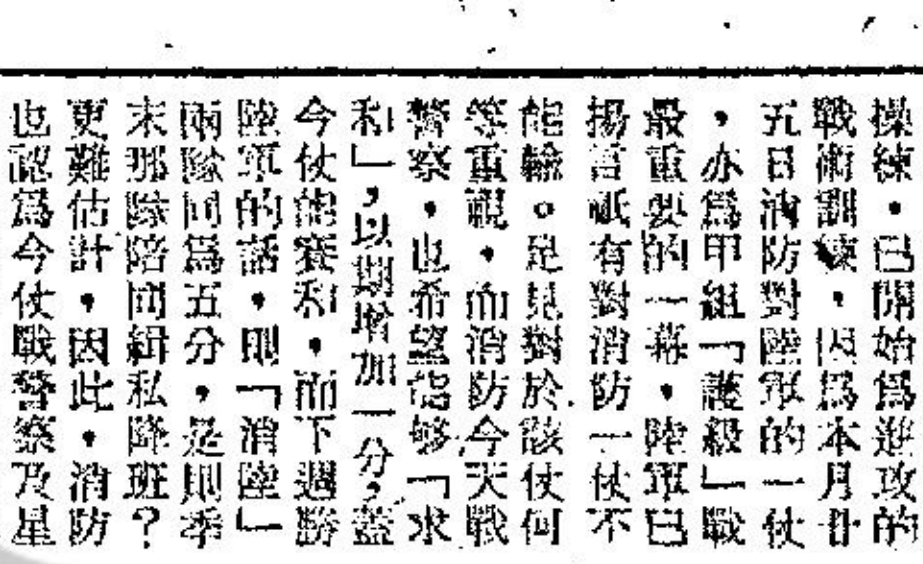 操練，已開始爲進攻的
戰術訓練，因爲本月廿
五日消防對陸軍的一仗
，亦爲甲組「護級」戰
最重要的一幕，陸軍已
揚言祇有對消防一仗不
能輸。足見對於該仗何
等重視，而消防今天戰
警察，也希望能够「求
和」，以期增加一分，蓋
今仗能賽和，而下週勝
陸軍的話，則「消陸」
兩隊同爲五分，是則季
末那隊陪同緝私降班？
更難估計，因此，消防
也認爲今仗戰警察及星